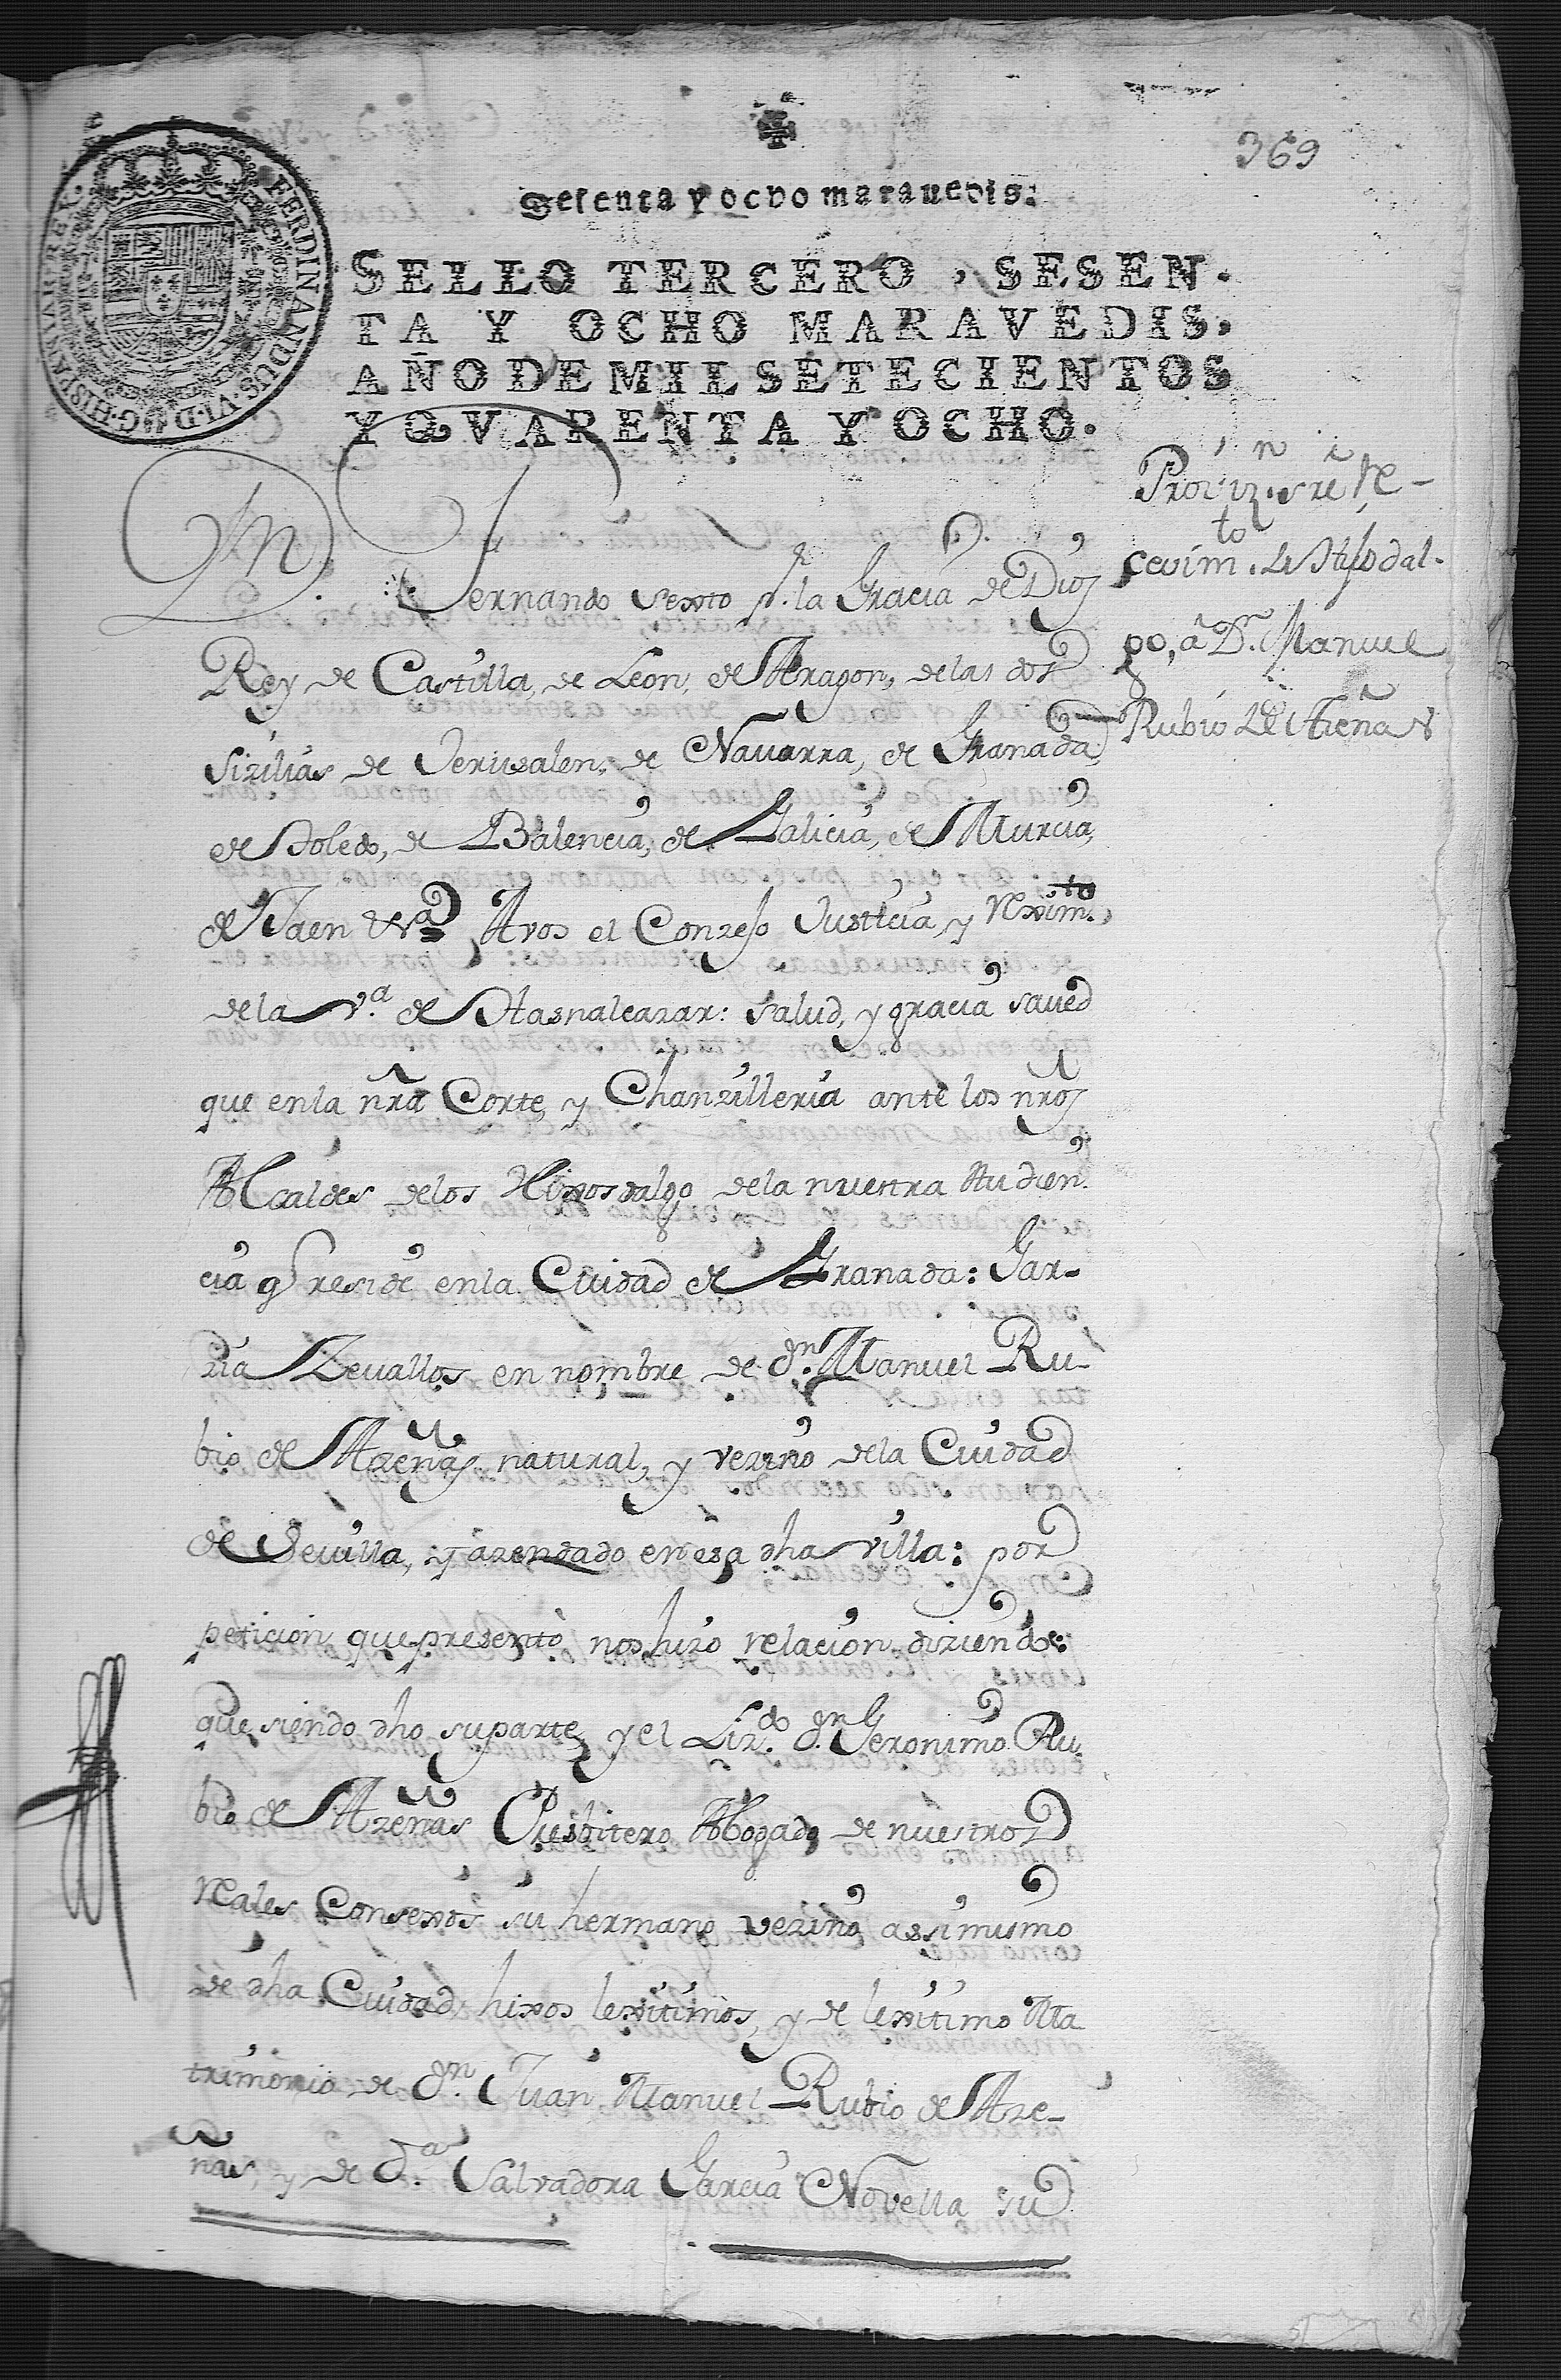 369
Sesenta y ocho marauedis:
SELLO TERCERO, SESEN-
TA Y OCHO MARAVEDIS.
AÑO DE MIL SETECIENTOS
Y QVARENTA Y OCHO.
FERDINANDUS·VI·D·G·HISPANIAR·REX·
Dn
Fernando Sexto pr. la Gracia de Dios
Rey de Castilla, de Leon, de Aragon, de las dos
Sizilias de Jerusalen, de Navarra, de Granada
de Toledo, de Balencia, de Galicia, de Murcia,
de Jaen &ª. A vos el Conzejo Justicia, y Reximto.,
de la Vª. de Haznalcazar: salud, y gracia saued
que en la nra Corte, y Chanzilleria ante los nros
Alcaldes de los Hixosdalgo de la nuestra Audien-
cia q reside en la Ciudad de Granada: Gar-
zia Zeuallos en nombre de dn. Manuel Ru-
bio de Azeñas natural, y vezino de la Ciudad
de Seuilla, y azendado en esa dha villa: por
peticion que presentò nos hizo relacion diziendo:
que siendo dho su parte, y el Lizdo. dn. Geronimo Ru-
bio de Azeñas Presbitero Abogado de nuestros
Reales Consexos su hermano vezino assimismo
de dha Ciudad hixos lexitimos, y de lexitimo Ma
trimonio de dn. Juan Manuel Rubio de Aze-
ñas, y de dª. Salvadora Garcia Novella su
Provizn. sre Re-
cevimto. de Hijodal-
go, â Dn. Manuel
Rubio de Azeñas